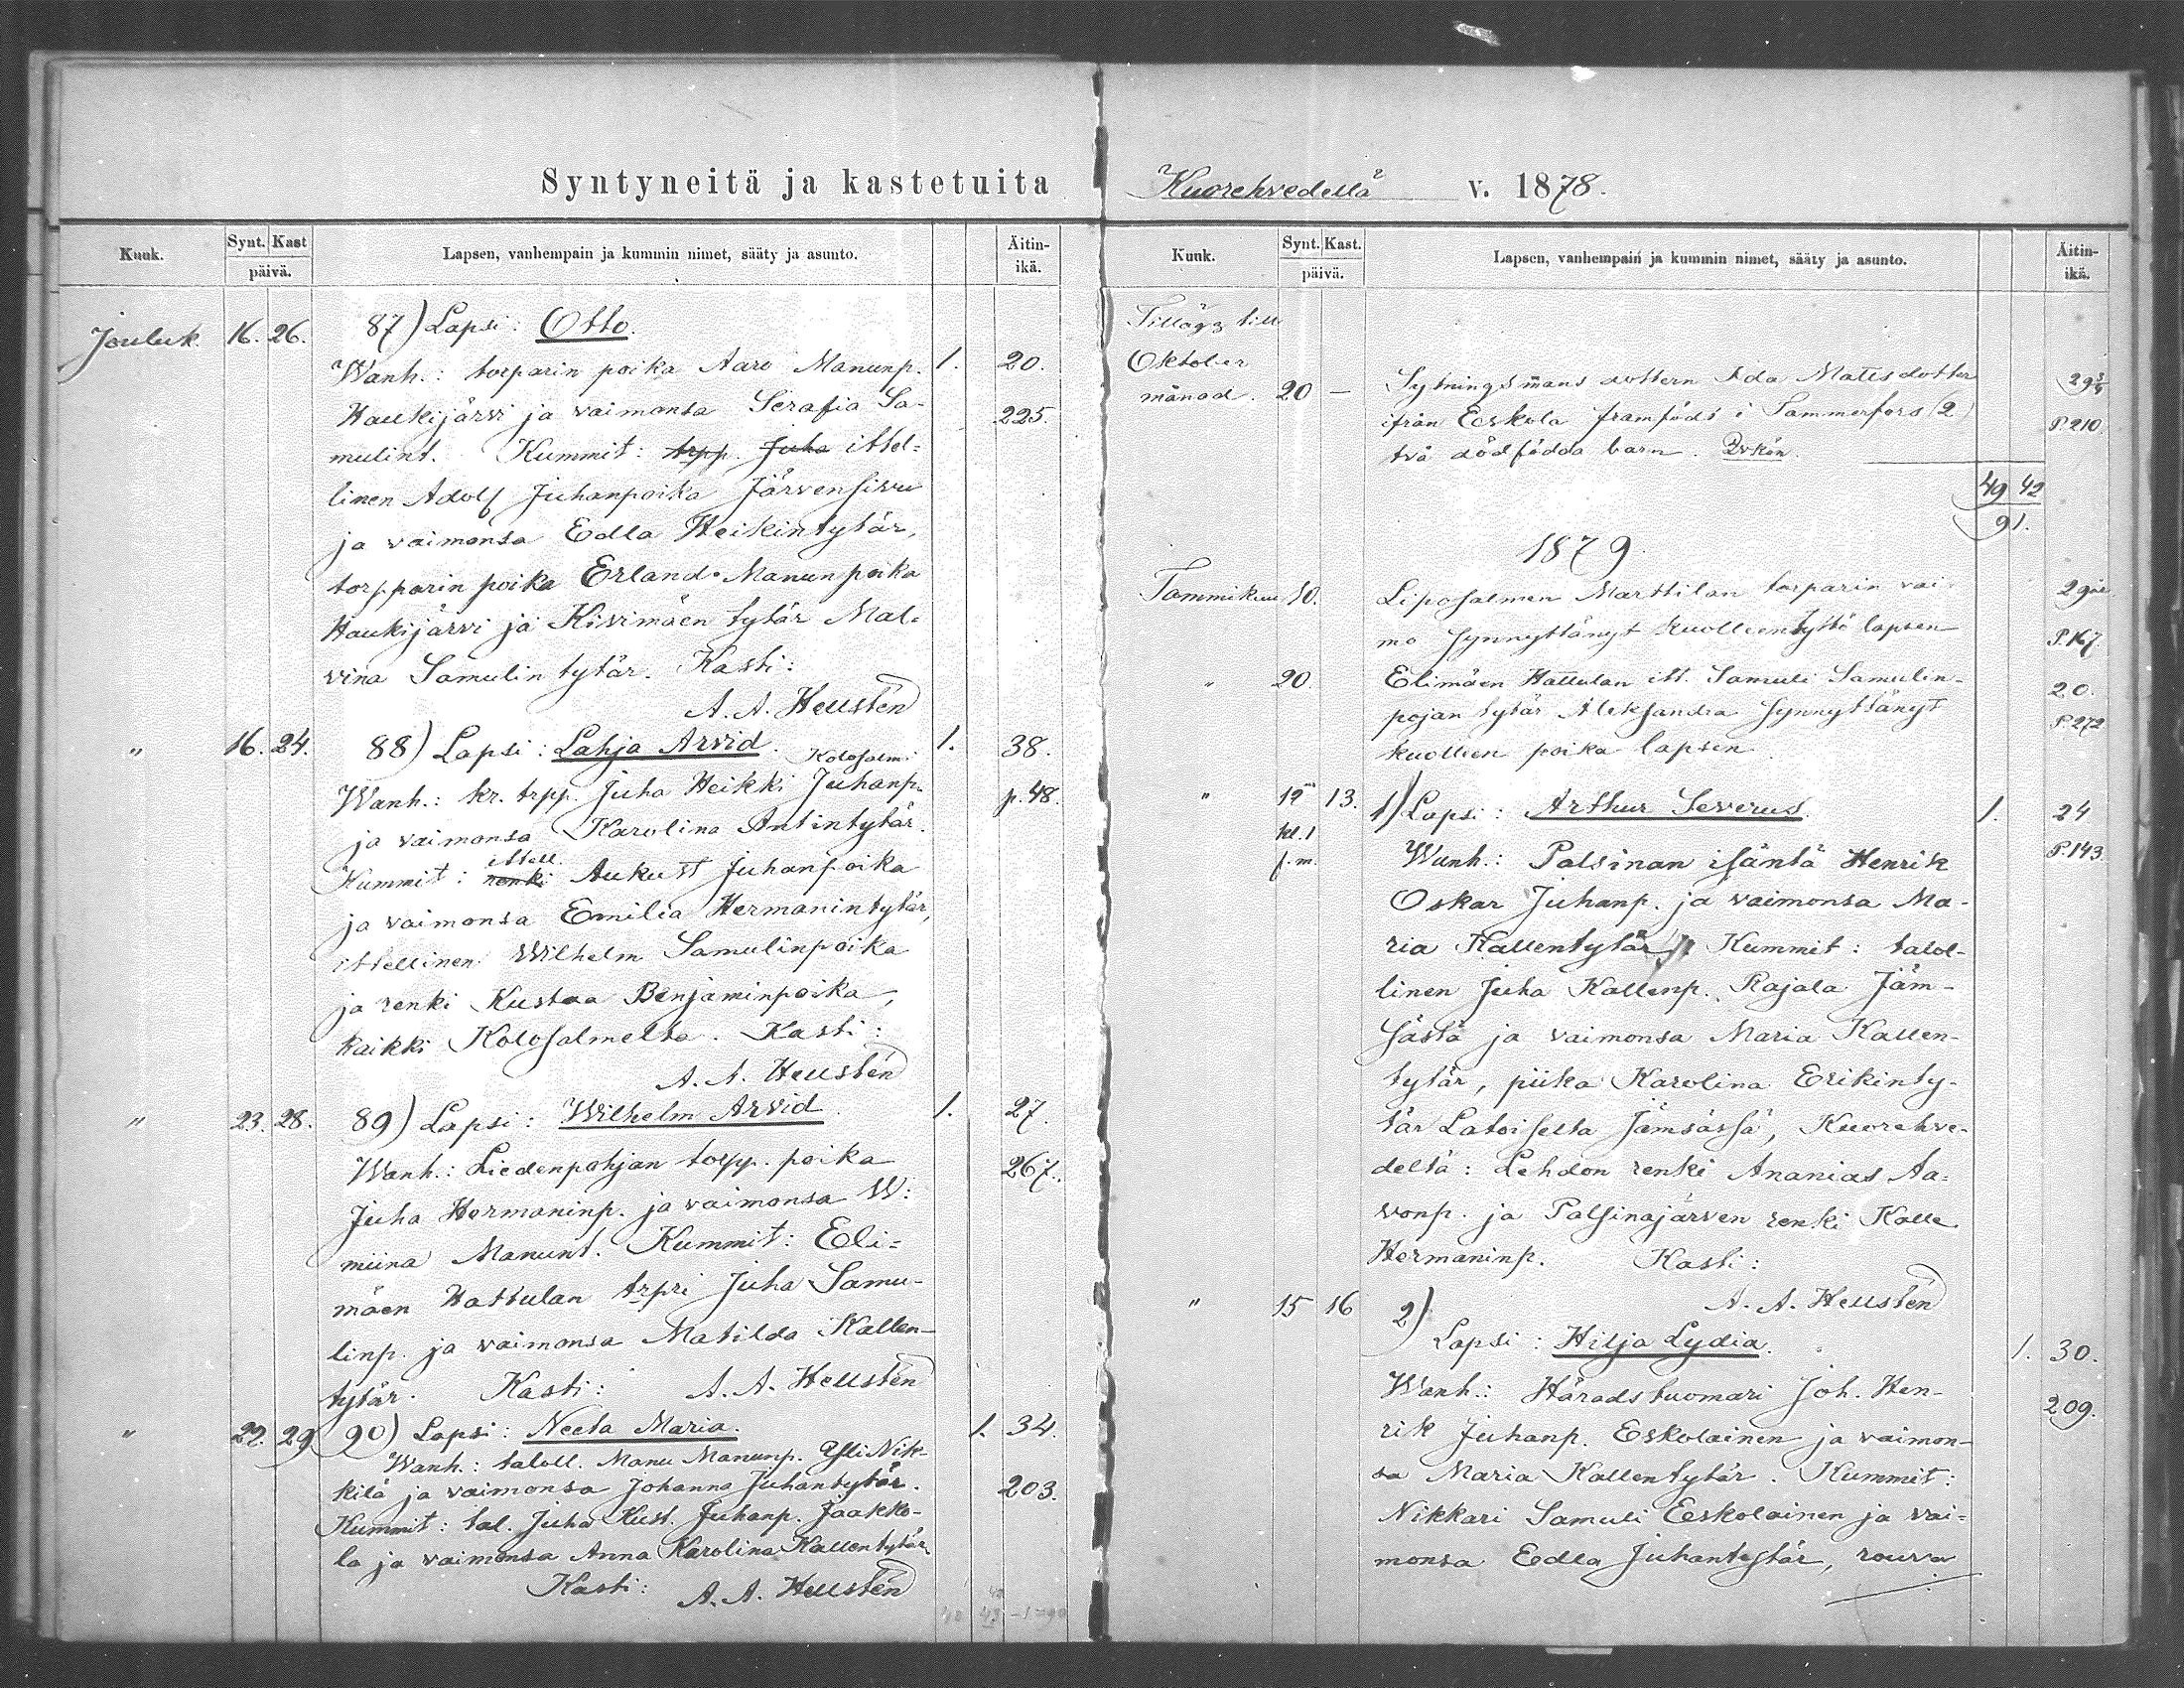 Syntyneitä ja kastetuita
Kuuk.
Synt. Kast
päivä.
Lapsen, vanhempain ja kummin nimet, sääty ja asunto.
Äitin-
ikä.
Jouluk. 16. 26. 87) Lapsi: Otto.
Wanh.: torparin poika Aaro Manunp. 1. 20.
Haukijärvi ja vaimonsa Serafia Sa- 225.
mulint. Kummit: trpp. Juha ittel=
linen Adolf Juhanpoika Järvensivu
ja vaimonsa Edla Heikintytär,
torpparin poika Erland Manunpoika
Haukijärvi ja Kivimäen tytär Mal-
vina Samulin tytär. Kasti:
A. A. Hellstén
" 16. 24. 88) Lapsi: Lahja Arvid. 1. 38.
Kolosalmi
Wanh.: kr. trpp. Juha Heikki Juhanp. p. 48.
ja vaimonsa Karolina Antintytär.
ittell.
Kummit: renki Aukusti Juhanpoika
ja vaimonsa Emilia Hermanintytär,
ittellinen Wilhelm Samulinpoika
ja renki Kustaa Benjaminpoika,
kaikki Kolosalmelta. Kasti:
A. A. Hellstén
" 23. 28. 89) Lapsi: Wilhelm Arvid. 1. 27.
Wanh.: Liedenpohjan torpp. poika 267.
Juha Hermaninp. ja vaimonsa W:
miina Manunt. Kummit: Eli=
mäen Hattulan trpri Juha Samu-
linp. ja vaimonsa Matilda Kallen-
tytär. Kasti: A. A. Hellstén
" 22. 29 90) Lapsi: Neeta Maria. 1. 34.
Wanh.: taloll. Manu Manunp. Yli Nik-
kilä ja vaimonsa Johanna Juhantytär. 203.
Kummit: tal. Juha Kust. Juhanp. Jaakko-
la ja vaimonsa Anna Karolina Kallentytär.
Kasti: A. A. Hellstén
Kuorehvedellä v. 1878.
Kuuk.
Synt. Kast.
päivä.
Lapsen, vanhempain ja kummin nimet, sääty ja asunto.
Äitin-
ikä.
Tillägg till
Oktober
månad. 20 — Sytningsmans dottern Ida Matisdotter 29 3/4
ifrån Eskola framfödt i Tammerfors (2) P. 210.
två dödfödda barn.
49 42
91.
1879.
Tammikuu 10. Liposalmen Marttilan torparin vai-
mo synnyttänyt kuolleen tyttö lapsen P. 167.
" 20. Elimäen Hattulan itt. Samuli Samulin- 20.
pojan tytär Aleksandra synnyttänyt P. 272
kuolleen poika lapsen
" 12 13. 1) Lapsi: Arthur Severus. 1. 24
kl. 1
f. m. Wanh.: Palsinan isäntä Henrik P. 143.
Oskar Juhanp. ja vaimonsa Ma-
ria Kallentytär. Kummit: talol-
linen Juha Kallenp. Rajala Jäm-
sästä ja vaimonsa Maria Kallen-
tytär, piika Karolina Erikinty-
tär Latoiselta Jämsässä, Kuorehve-
deltä: Lehdon renki Ananias Aa-
vonp. ja Palsinajärven renki Kalle
Hermaninp. Kasti:
A. A. Hellstén
" 15 16 2)
Lapsi: Hilja Lydia. 1. 30.
Wanh.: Häradstuomari Joh. Hen- 209.
rik Juhanp. Eskolainen ja vaimon-
sa Maria Kallentytär. Kummit:
Nikkari Samuli Eeskolainen ja vai=
monsa Edla Juhantytär, rouva